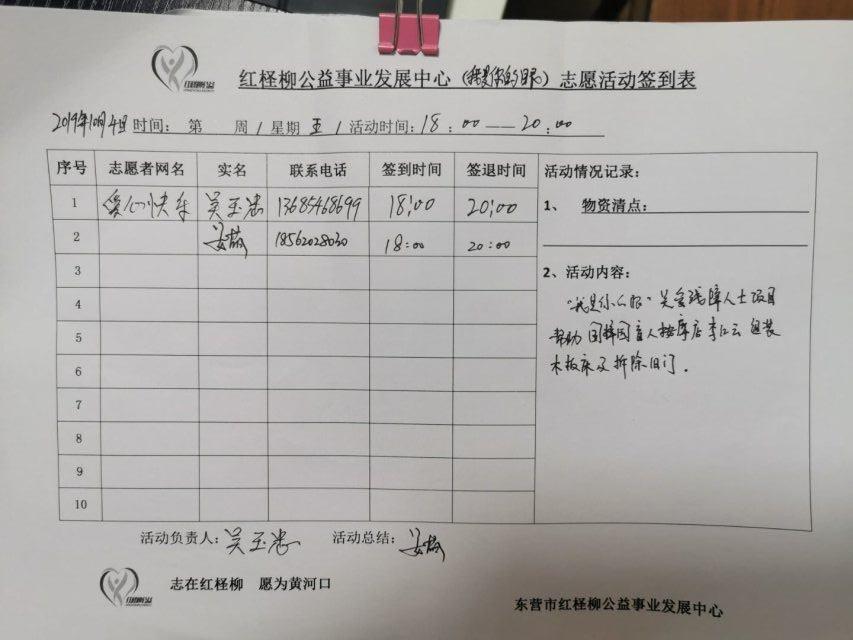 红柽柳公益事业发展中心(我是你的眼)志愿活动签到表
2019年10月4日 时间: 第 周 / 星期 五 / 活动时间: 18:00——20:00
序号 志愿者网名 实名 联系电话 签到时间 签退时间 活动情况记录:
1 爱心快车 吴玉忠 13685468699 18:00 20:00
1、 物资清点:
2 18562028030 18:00 20:00
3
2、活动内容:
4
"我是你的眼"关爱残障人士项目
5
帮助 盲人按摩店李江云 组装
6
木板床及拆除旧门.
7
8
9
10
活动负责人: 吴玉忠 活动总结:
志在红柽柳 愿为黄河口
东营市红柽柳公益事业发展中心